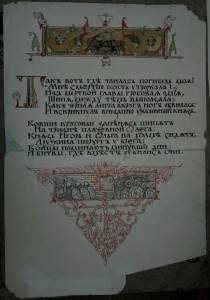 Такъ вотъ где таилась погибель моя!
Мне смертiю кость угрожала!
Изъ мертвой главы гробовая змiя,
Шипя между темъ выползала;
Какъ черная лента вкругъ ногъ обвилась
И вскрикнулъ внезапно ужаленный князь.
Ковши круговые запенясь шипятъ
На тризне плачевной Олега;
Князь Игорь и Ольга на холме сидятъ;
Дружина пируетъ у брега;
Бойцы поминаютъ минувшiе дни
И битвы, где вместе рубились они.